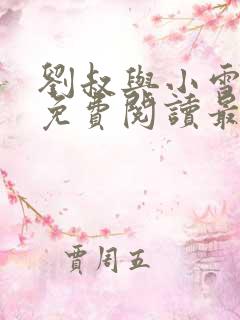 劉叔與小雪
免費閱讀最
賈周五